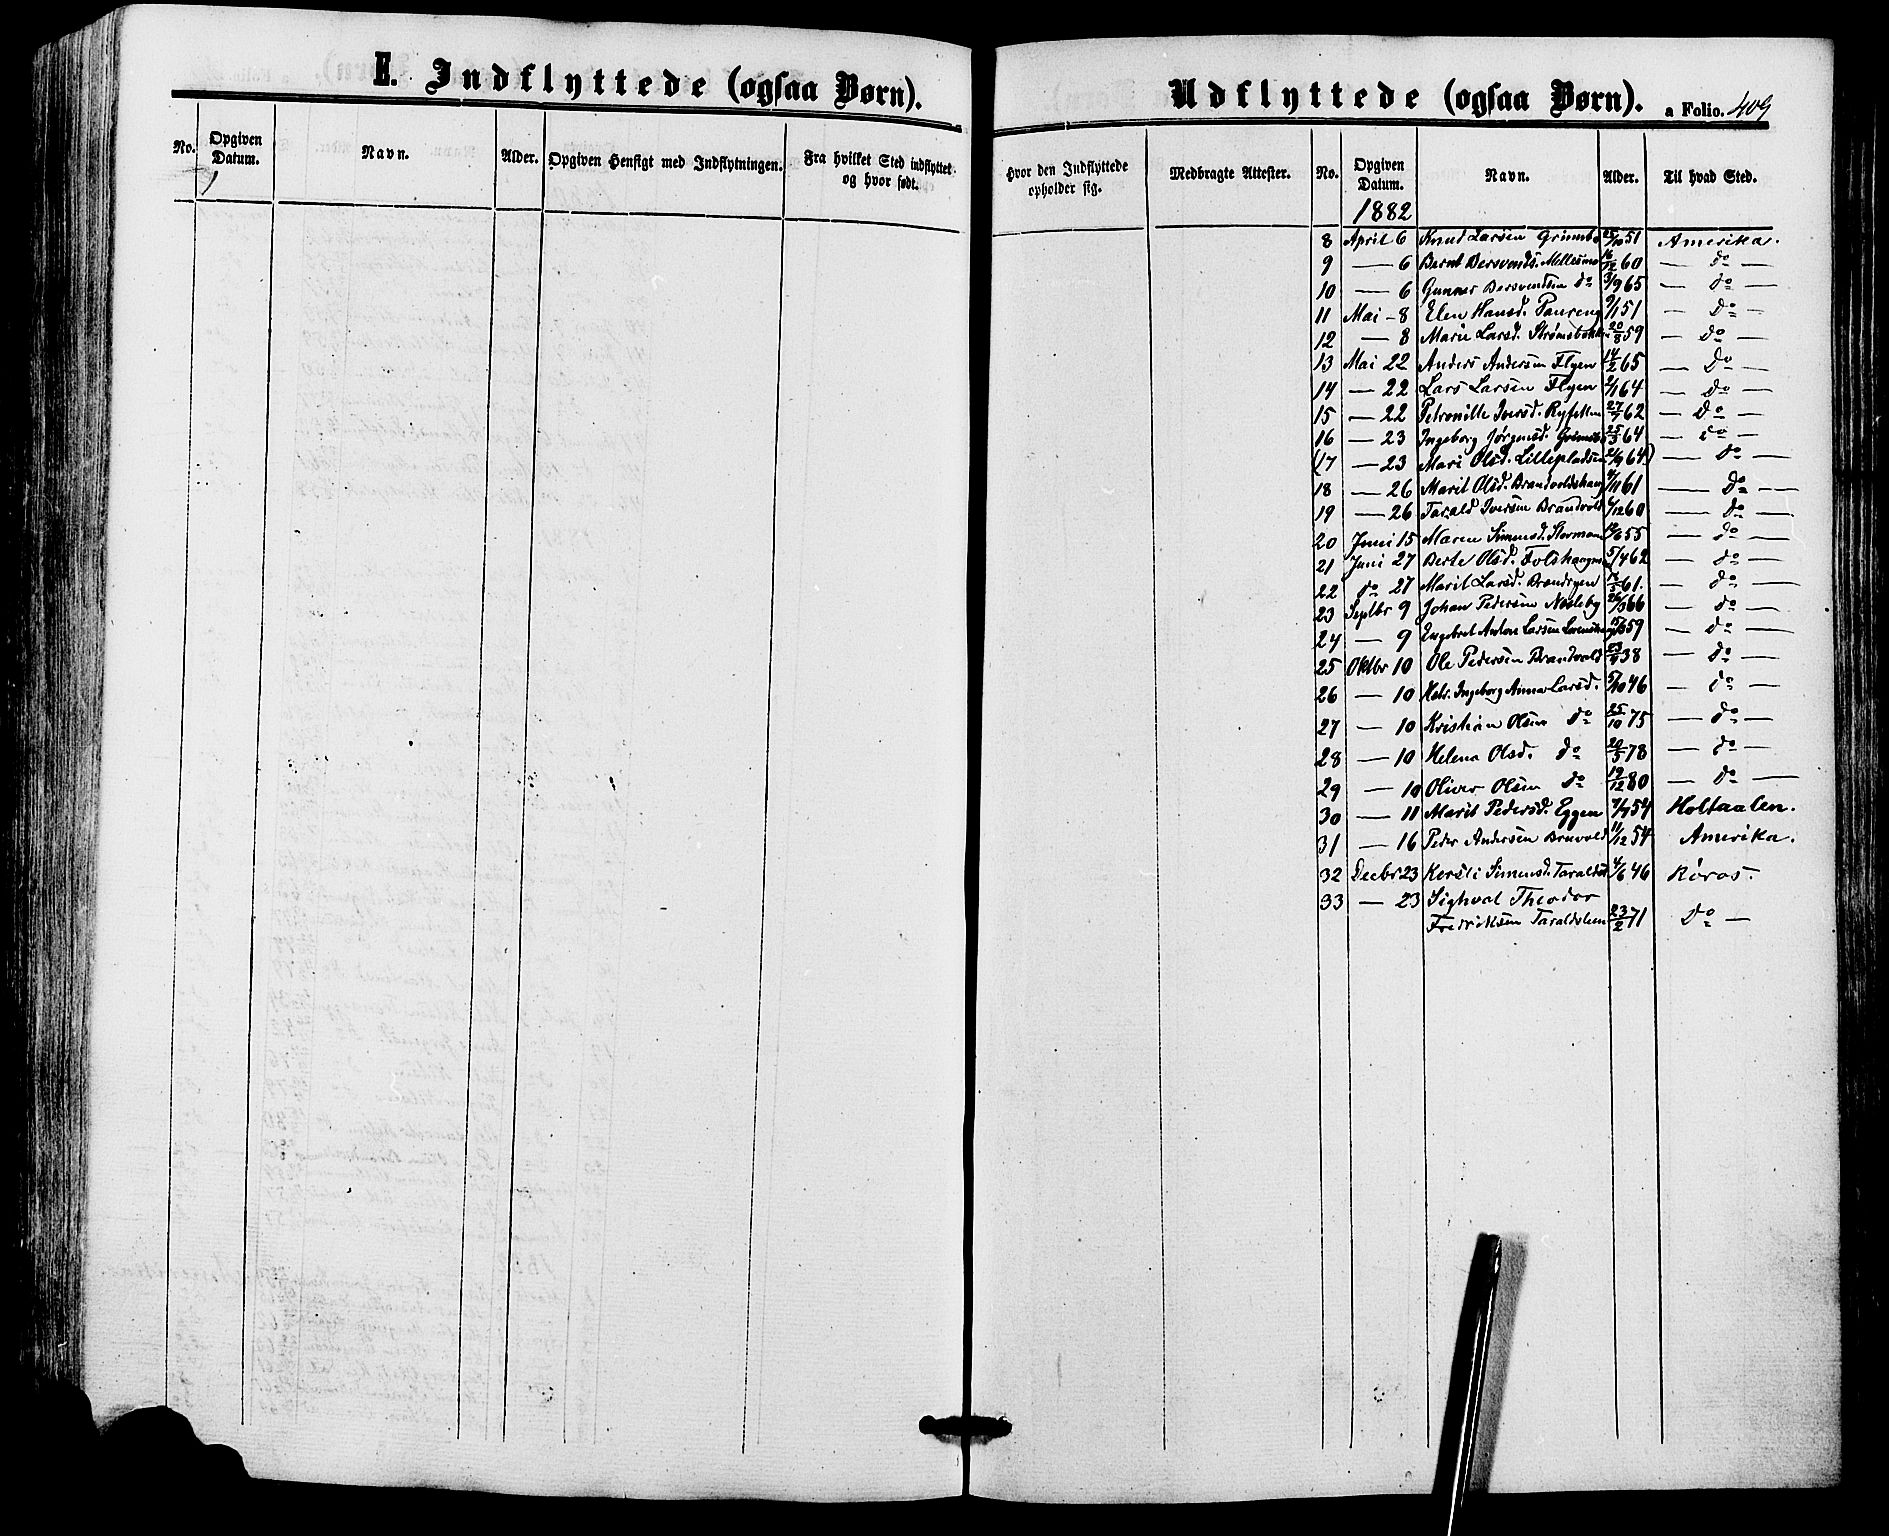 E. Indflyttede (ogsaa Børn).
No. Opgiven Datum. Navn. Alder. Opgiven Hensigt med Indflytningen. Fra hvilket Sted indflyttet og hvor født.
Udflyttede (ogsaa Børn). a Folio. 409
Hvor den Indflyttede opholder sig. Medbragte Attester. No. Opgiven Datum. Navn. Alder. Til hvad Sted.
1882
8 April 6 Knud Larsen 25/10 51 Amerika.
9 — 6 Bernt Bersvends. Mellesmo 16/12 60 — do —
10 — 6 Gunner Bersvendsen do 3/9 65 — do —
11 Mai - 8 Elen Hansd. 9/1 51 — Do —
12 — 8 Marie Larsd. 20/8 59 — do —
13 Mai 22 Anders Andersen Flyen 14/2 65 — Do —
14 — 22 Lars Larsen Flyen 2/1 64 — do —
15 — 22 Petronille Iversd. 27/7 62 — Do —
16 — 23 Ingeborg Jørgensd. 25/3 64 — do —
(17 — 23 Mari Olsd. Lillepladsen 64) — do —
18 — 26 Marit Olsd. 61 — Do —
19 — 26 Tarald Iversen Brandvold 60 — do —
20 Juni 15 Maren Simensd. 55 — do —
21 Juni 27 Berte Olsd. 5/4 62 — do —
22 do 27 Marit Larsd. 61. — do —
23 Septbr 9 Johan Pedersen 66 — do —
24 — 9 Engebret Larsen 59 — do —
25 Oktbr 10 Ole Pedersen Brandvold 38 — do —
26 — 10 Ingeborg Anna Larsd. 5/10 46 — do —
27 — 10 Kristian Olsen do 25/10 75 — do —
28 — 10 Helena Olsd. do 78 — do —
29 — 10 Oliver Olsen do 19/12 80 — do —
30 — 11 Marit Pedersd. Eggen 54 Holtaalen.
31 — 16 Peder Andersen 11/12 54 Amerika.
32 Decbr 23 Kersti Simensd. 4/6 46 Røros.
33 — 23 Sighvat Theodor
Fredriksen Taraldslien 23/2 71 Do —